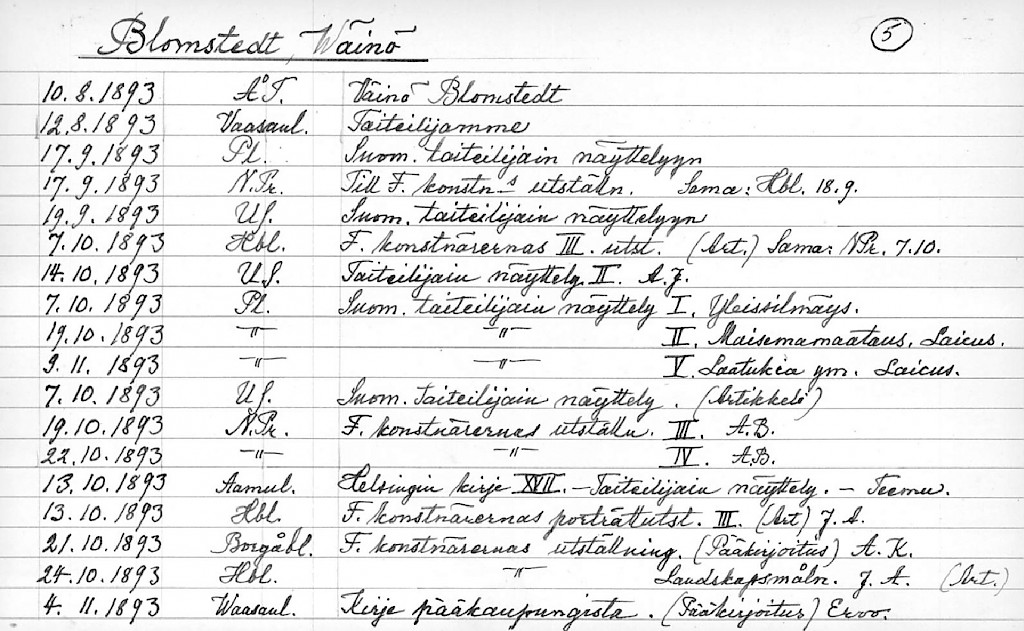 Blomstedt, Wäinö 5
10.8.1893 Å.T. Väinö Blomstedt
12.8.1893 Vaasaul. Taiteilijamme
17.9.1893 Pl. Suom. taiteilijain näyttelyyn
17.9.1893 N.Pr. Till F. konstn-s utställn. Sama: Hbl. 18.9.
19.9.1893 U.S. Suom. taiteilijain näyttelyyn
7.10.1893 Hbl. F. konstnärernas III. utst. (Art.) Sama: N.Pr. 7.10.
14.10.1893 U.S. Taiteilijain näyttely II. A.J.
7.10.1893 Pl. Suom. taiteilijain näyttely I. Yleissilmäys.
19.10.1893 -"- -"- II. Maisemamaalaus. Laicus.
9.11.1893 -"- -"- V. Laatukia ym. Laicus.
7.10.1893 U.S. Suom. Taiteilijain näyttely. (Artikkeli)
19.10.1893 N.Pr. F. konstnärernas utställn. III. A.B.
22.10.1893 -"- -"- IV. A.B.
13.10.1893 Aamul. Helsingin kirje XVII. - Taiteilijain näyttely. - Teemu.
13.10.1893 Hbl. F. konstnärernas porträttutst. III. (Art) J.A.
21.10.1893 Borgåbl. F. konstnärernas utställning. (Pääkirjoitus) A.K.
24.10.1893 Hbl. -"- Landskapsmåln. J.A. (Art.)
4.11.1893 Waasaul. Kirje pääkaupungista. (Pääkirjoitus) Ervo.